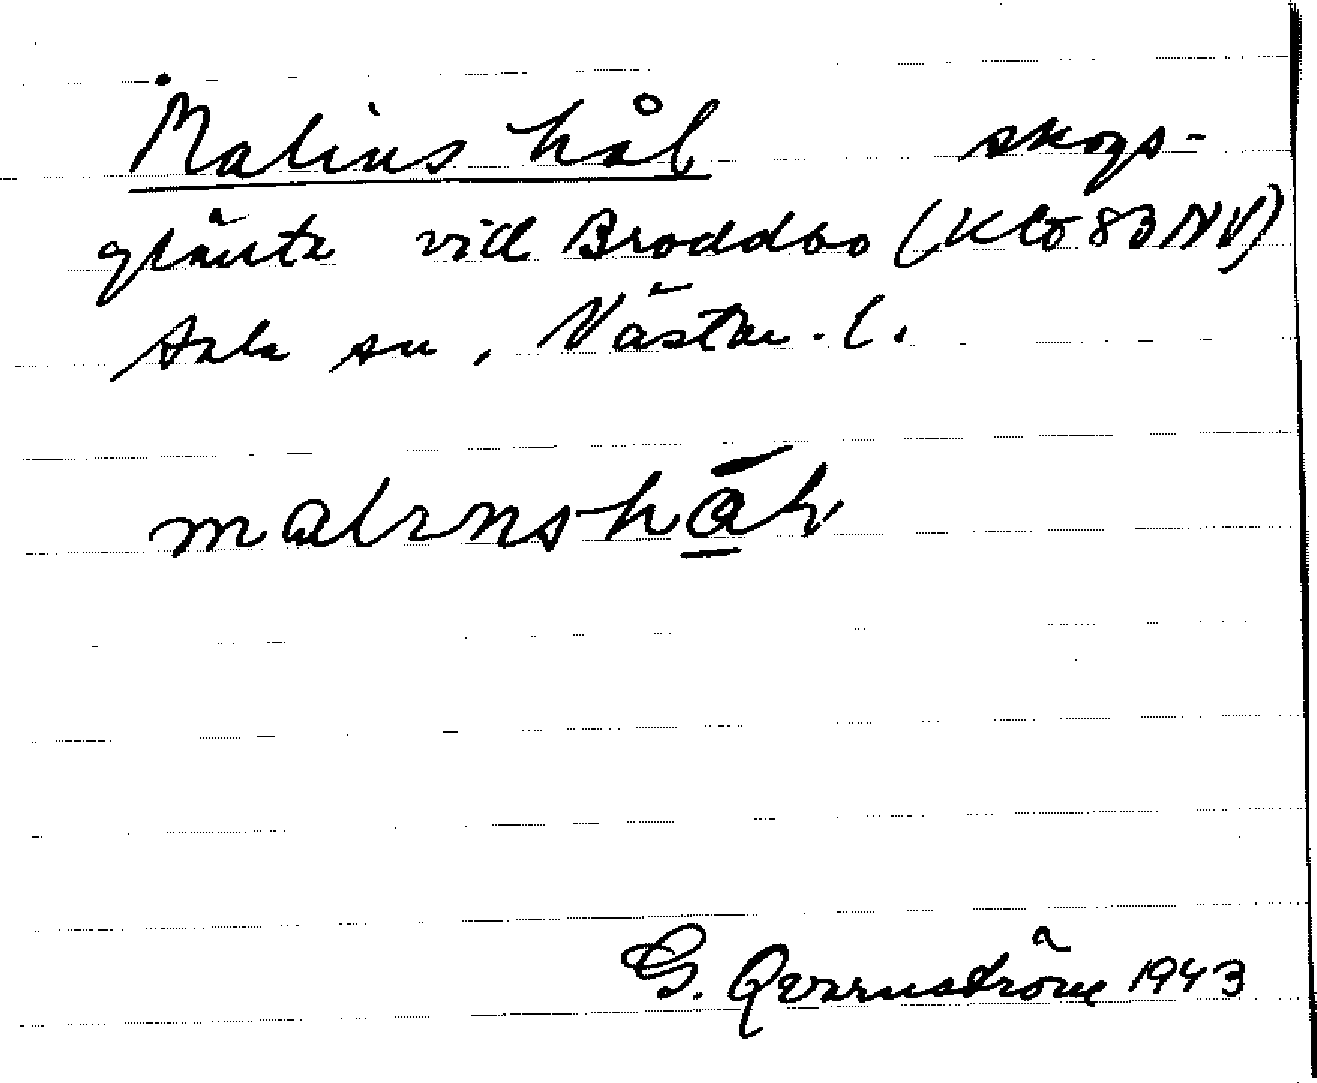 Malins hål skogs-
glänta vid Broddbo (Klo 83 NV)
Sala sn, Västm. l.
malinshāl
G. Qvarnström 1943